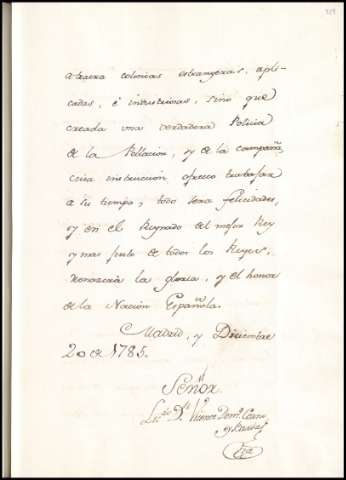 atraera colonias estrangeras, apli-
cadas, é industriosas, sino que
creada una verdadera Policia
de la Poblacion, y de la campaña,
cuia instruccion ofrezco trabajar
a su tiempo, todo sera felicidades,
y en el Reynado del mejor Rey
y mas justo de todos los Reyes,
renacerá la gloria, y el honor
de la Nacion Española.
Madrid, y Diciembre
20 de 1785.
Señor.
Lic.do Dn. Domo. Cano